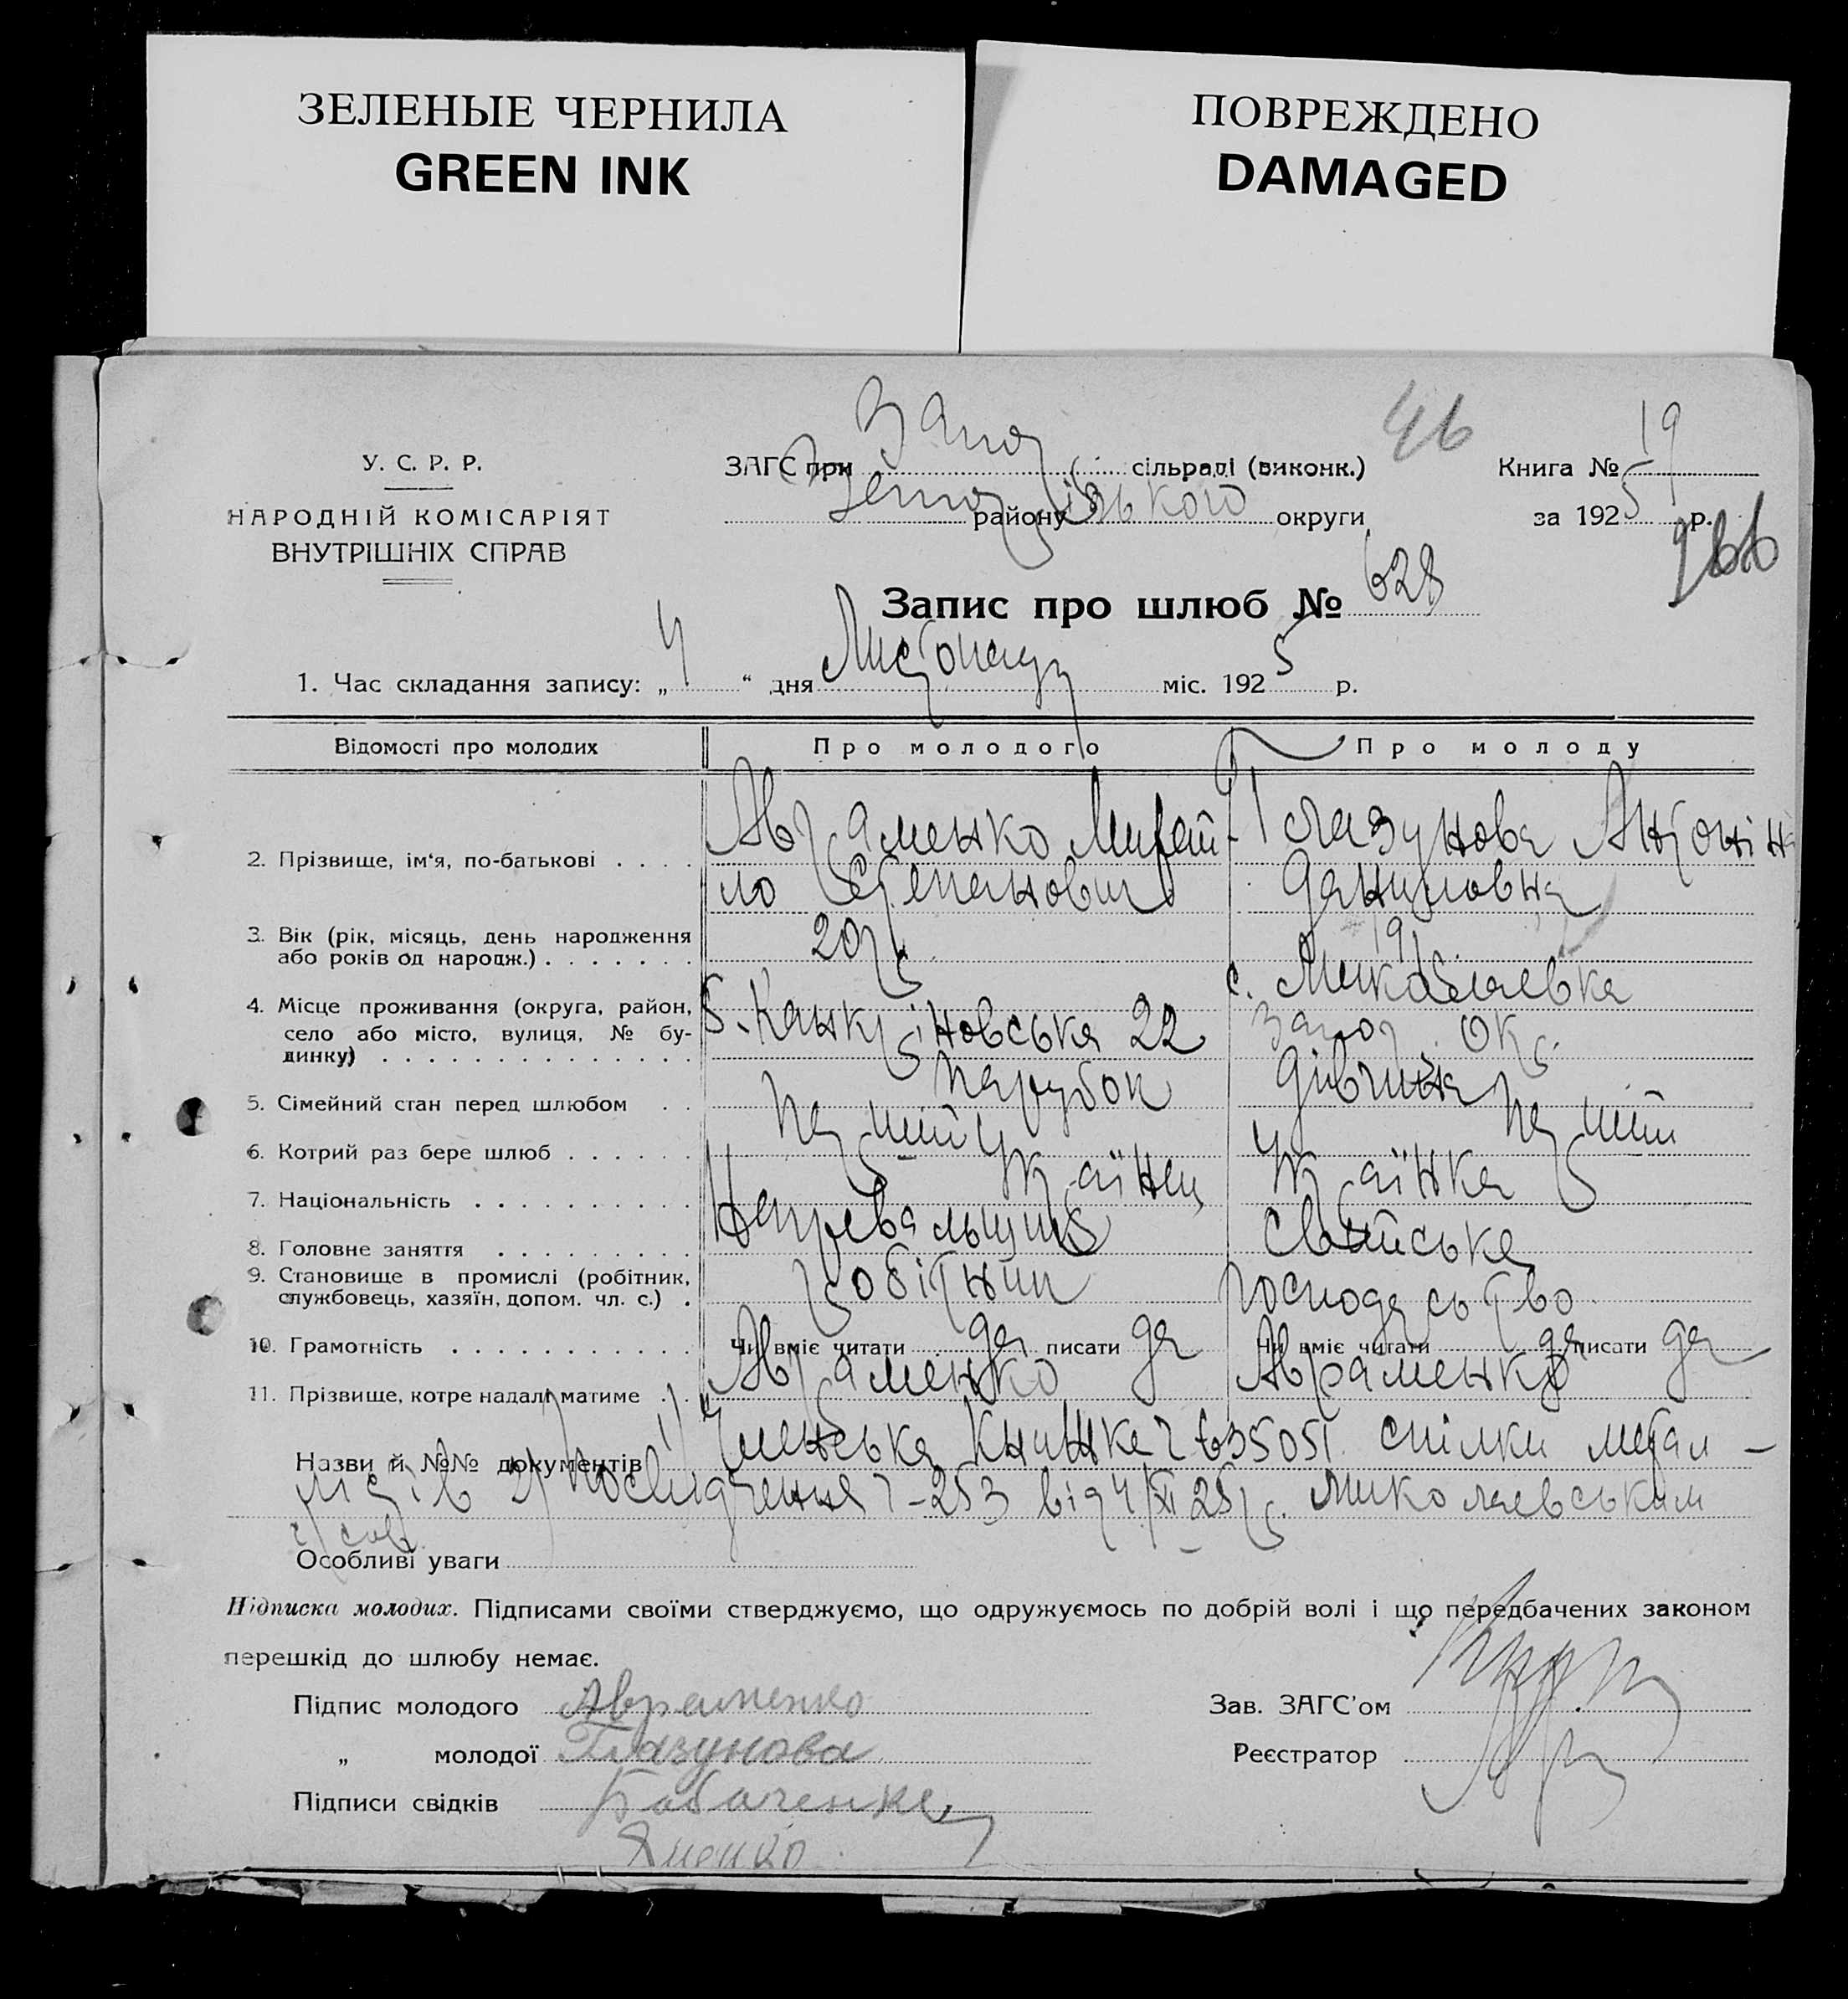 ЗЕЛЕНЫЕ ЧЕРНИЛА
GREEN INK
ПОВРЕЖДЕНО
DAMAGED
46
У. С. Р. Р.
НАРОДНІЙ КОМІСАРІЯТ
ВНУТРІШНІХ СПРАВ
ЗАГС при Запор сільраді (виконк.)
району округи
Книга № 19
за 1925 р.
266
Запис про шлюб № 628
1. Час складання запису: „ 4 “ дня Листопаду міс. 1925 р.
Відомості про молодих Про молодого Про молоду
2. Прізвище, ім‘я, по-батькові . . . . Авраменко Михай- Глазунова Антоніна
ло Степанович Даниловна
3. Вік (рік, місяць, день народження або років од народж.) . . . . . . . 20 р. 19 р.
4. Місце проживання (округа, район, село або місто, вулиця, № будинку) . . . . . . . . . . . . . Б. Канкріновська 22 с. Миколаевка
Запор. Окр.
5. Сімейний стан перед шлюбом . . парубок дівчина
6. Котрий раз бере шлюб . . . . . . перший перший
7. Національність . . . . . . . . . . Українец Українка
8. Головне заняття . . . . . . . . . Нагревальщик
9. Становище в промислі (робітник, службовець, хазяїн, допом. чл. с.) . робітник господарство
10. Грамотність . . . . . . . . . . . Чи вміє читати да писати да Чи вміє читати да писати да
11. Прізвище, котре надалі матиме . . Авраменко Авраменко
Назви й №№ документів 1) Членська Книжка 635051 спілки метал-
лістів 2) Посвидчення 253 від 4/XI 25 р. Миколаевським
с/сов
Особливі уваги
Підписка молодих. Підписами своїми стверджуємо, що одружуємось по добрій волі і що передбачених законом
перешкід до шлюбу немає.
Підпис молодого Авраменко
„ молодої Глазунова
Підписи свідків Бабаченко
Яненко
Зав. ЗАГС’ом
Реєстратор